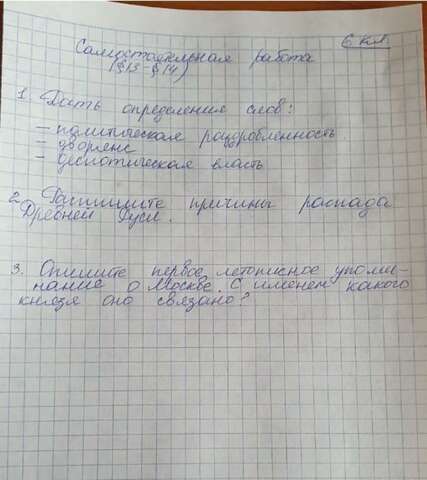 6 кл.
Самостоятельная работа
(§13-§14)
1. Дать определения слов:
- политическая раздробленность.
- дворяне
- деспотическая власть
2. Распишите причины распада
Древней Руси.
3. Опишите первое летописное упоми-
нание о Москве. С именем какого
князя оно связано?